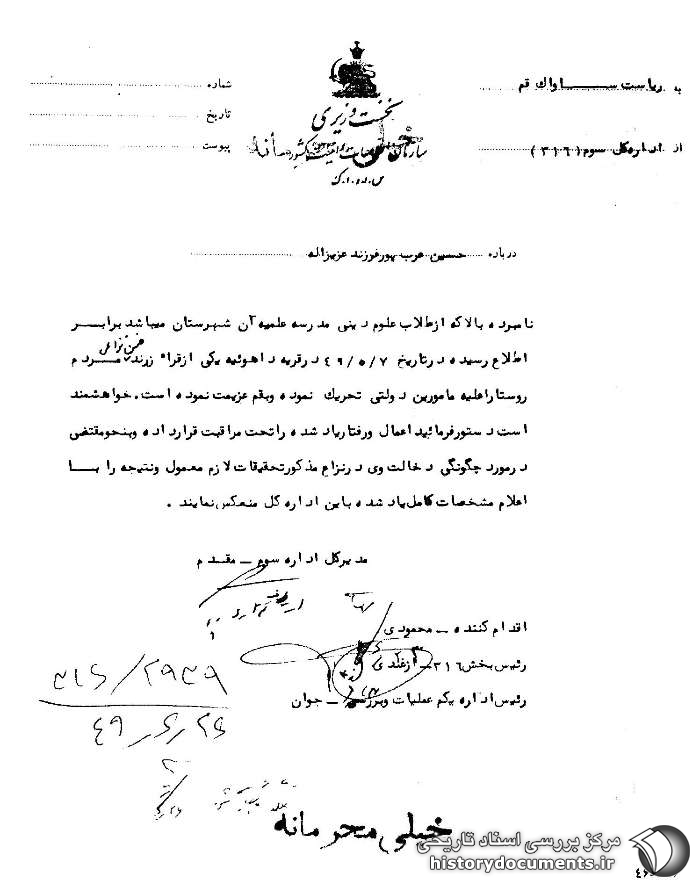 به ریاست ساواک قم
شماره
نخست وزیری
تاریخ
از اداره کل سوم (۳۱۶)
پیوست
س.ا.و.ا.ک
درباره حسین عرب پور فرزند عزیزاله
نامبرده بالا که از طلاب علوم دینی مدرسه علمیه آن شهرستان میباشد برابر
اطلاع رسیده در تاریخ ۴۹/۵/۷ در قریه داهوئیه یکی از قراء زرند مردم
روستا را علیه مامورین دولتی تحریک نموده و بقم عزیمت نموده است. خواهشمند
است دستور فرمائید اعمال و رفتار یاد شده را تحت مراقبت قرار داده و بنحو مقتضی
در مورد چگونگی دخالت وی در نزاع مذکور تحقیقات لازم معمول و نتیجه را با
اعلام مشخصات کامل یاد شده باین اداره کل منعکس نمایند.
مدیرکل اداره سوم ــ مقدم
اقدام کننده ــ محمودی
رئیس بخش ۳۱۶ ــ ازغندی
رئیس اداره یکم عملیات و بررسی ــ جوان
۳۱۶/۲۹۳۹
۴۹/۶/۲۶
خیلی محرمانه
مرکز بررسی اسناد تاریخی
historydocuments.ir